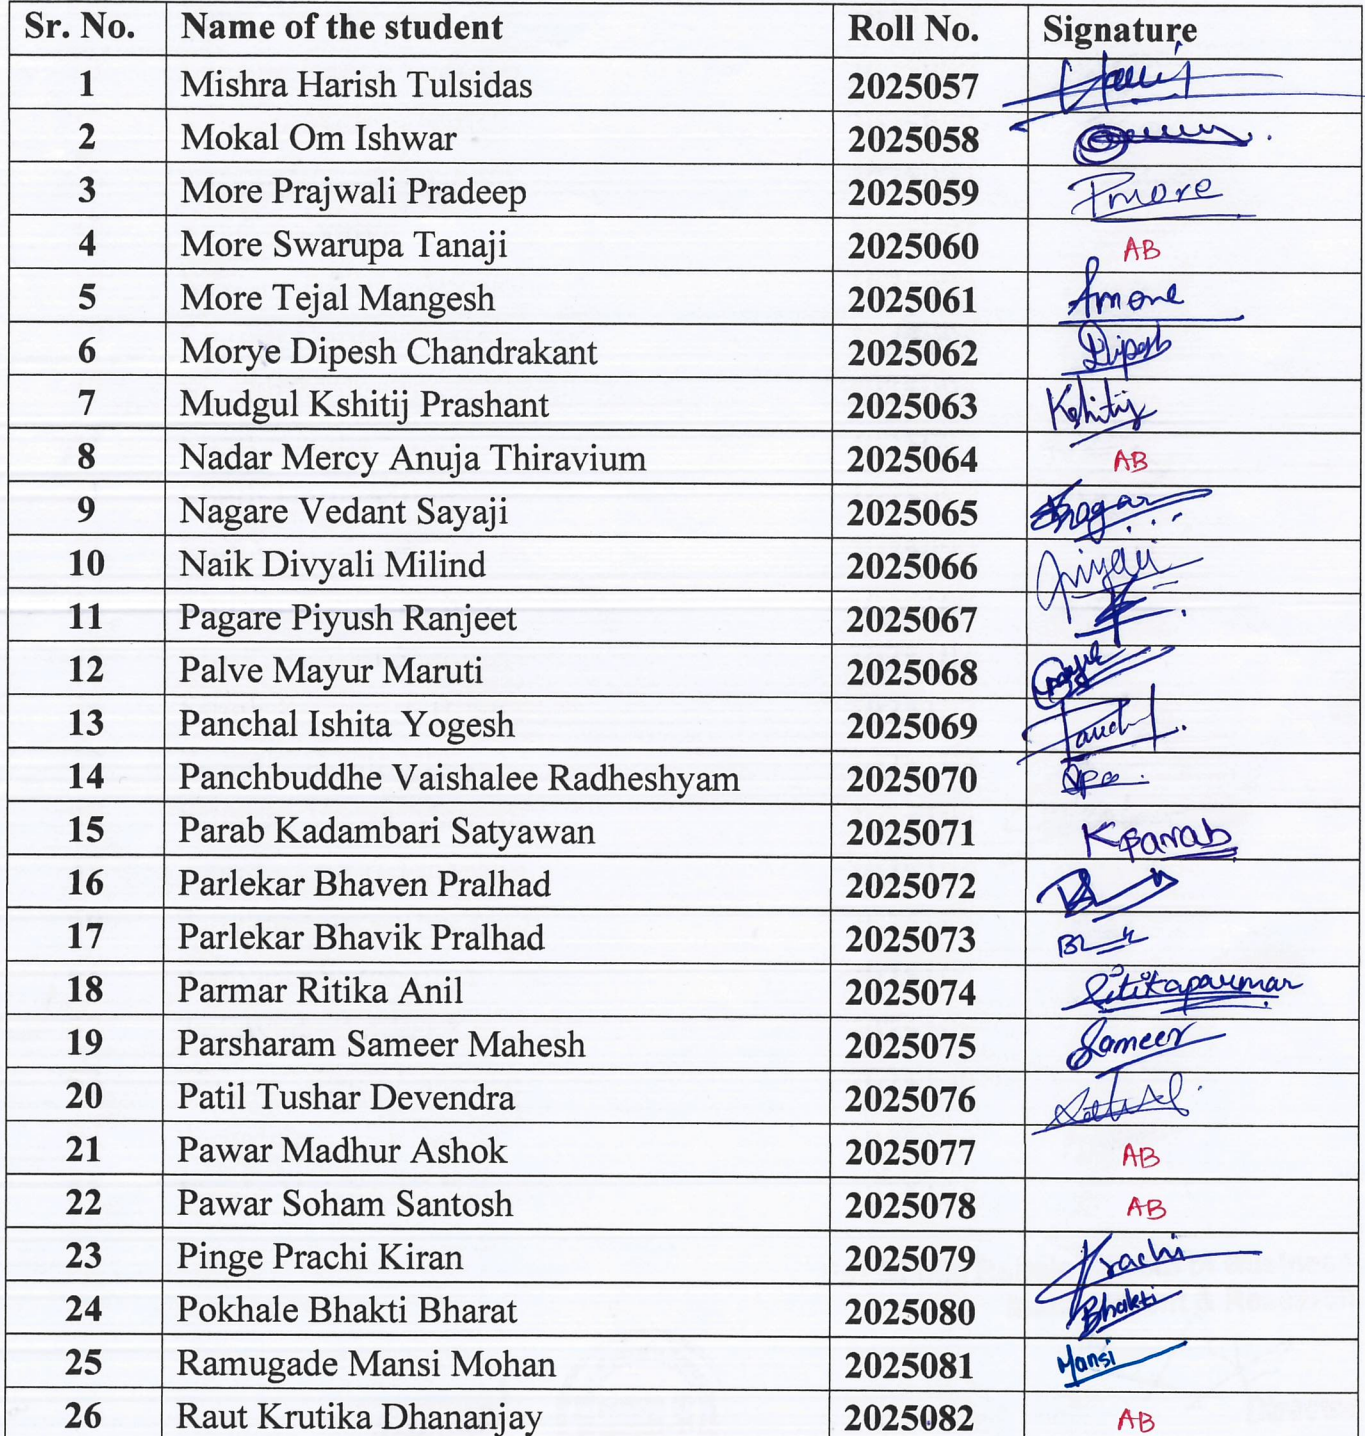 Sr. No. Name of the student Roll No. Signature
1 Mishra Harish Tulsidas 2025057
2 Mokal Om Ishwar 2025058
3 More Prajwali Pradeep 2025059 Pmore
4 More Swarupa Tanaji 2025060 AB
5 More Tejal Mangesh 2025061
6 Morye Dipesh Chandrakant 2025062 Dipesh
7 Mudgul Kshitij Prashant 2025063 Kshitij
8 Nadar Mercy Anuja Thiravium 2025064 AB
9 Nagare Vedant Sayaji 2025065
10 Naik Divyali Milind 2025066
11 Pagare Piyush Ranjeet 2025067
12 Palve Mayur Maruti 2025068
13 Panchal Ishita Yogesh 2025069
14 Panchbuddhe Vaishalee Radheshyam 2025070
15 Parab Kadambari Satyawan 2025071 KParab
16 Parlekar Bhaven Pralhad 2025072
17 Parlekar Bhavik Pralhad 2025073
18 Parmar Ritika Anil 2025074 Ritikaparmar
19 Parsharam Sameer Mahesh 2025075 Sameer
20 Patil Tushar Devendra 2025076
21 Pawar Madhur Ashok 2025077 AB
22 Pawar Soham Santosh 2025078 AB
23 Pinge Prachi Kiran 2025079 Prachi
24 Pokhale Bhakti Bharat 2025080 Bhakti
25 Ramugade Mansi Mohan 2025081 Mansi
26 Raut Krutika Dhananjay 2025082 AB